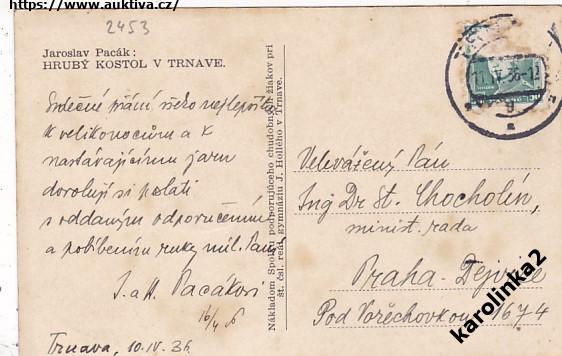 https://www.auktiva.cz/
2453
Jaroslav Pacák:
HRUBÝ KOSTOL V TRNAVE.
Srdečné přání všeho nejlepšího
k velikonocům a k
nastávajícímu jaru
dovolují si poslati
s oddaným odporučením
a políbením ruky mil. Paní
J. a H. Pacákovi
16/4
Trnava, 10.IV.36
Nákladom Spolku podporujúceho chudobných žiakov pri
št. čsl. reál. gymnáziu J. Hollého v Trnave.
11.IV.36-12
Velevážený Pán
Ing Dr St. Chocholín,
minist. rada
Praha-Dejvice
Pod Vořechovkou 1674
karolinka2